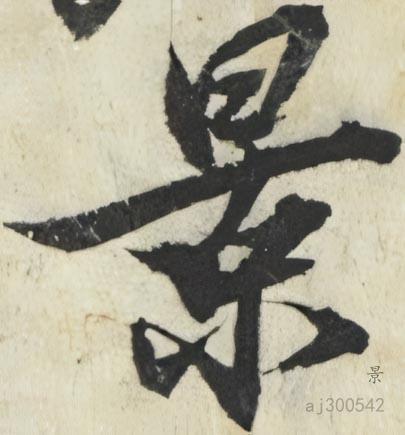 景
景
aj300542